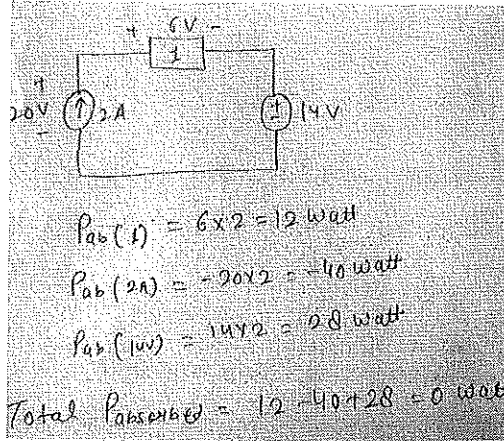 + 6V -
1
+
20V 2A
-
± 14V
Pab(1) = 6x2 = 12 watt
Pab(2A) = -20x2 = -40 watt
Pab(14V) = 14x2 = 28 watt
Total Pabsorbed = 12 -40+28 = 0 wat